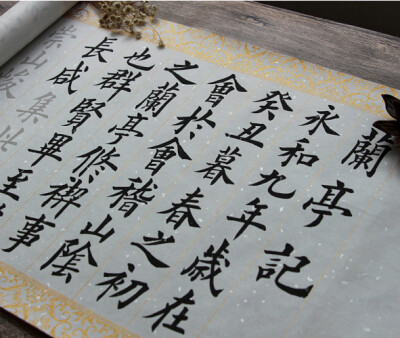 蘭亭記
永和九年歲在
癸丑暮春之初
會於會稽山陰
之蘭亭修禊事
也群賢畢至
長咸集此
崇山峻